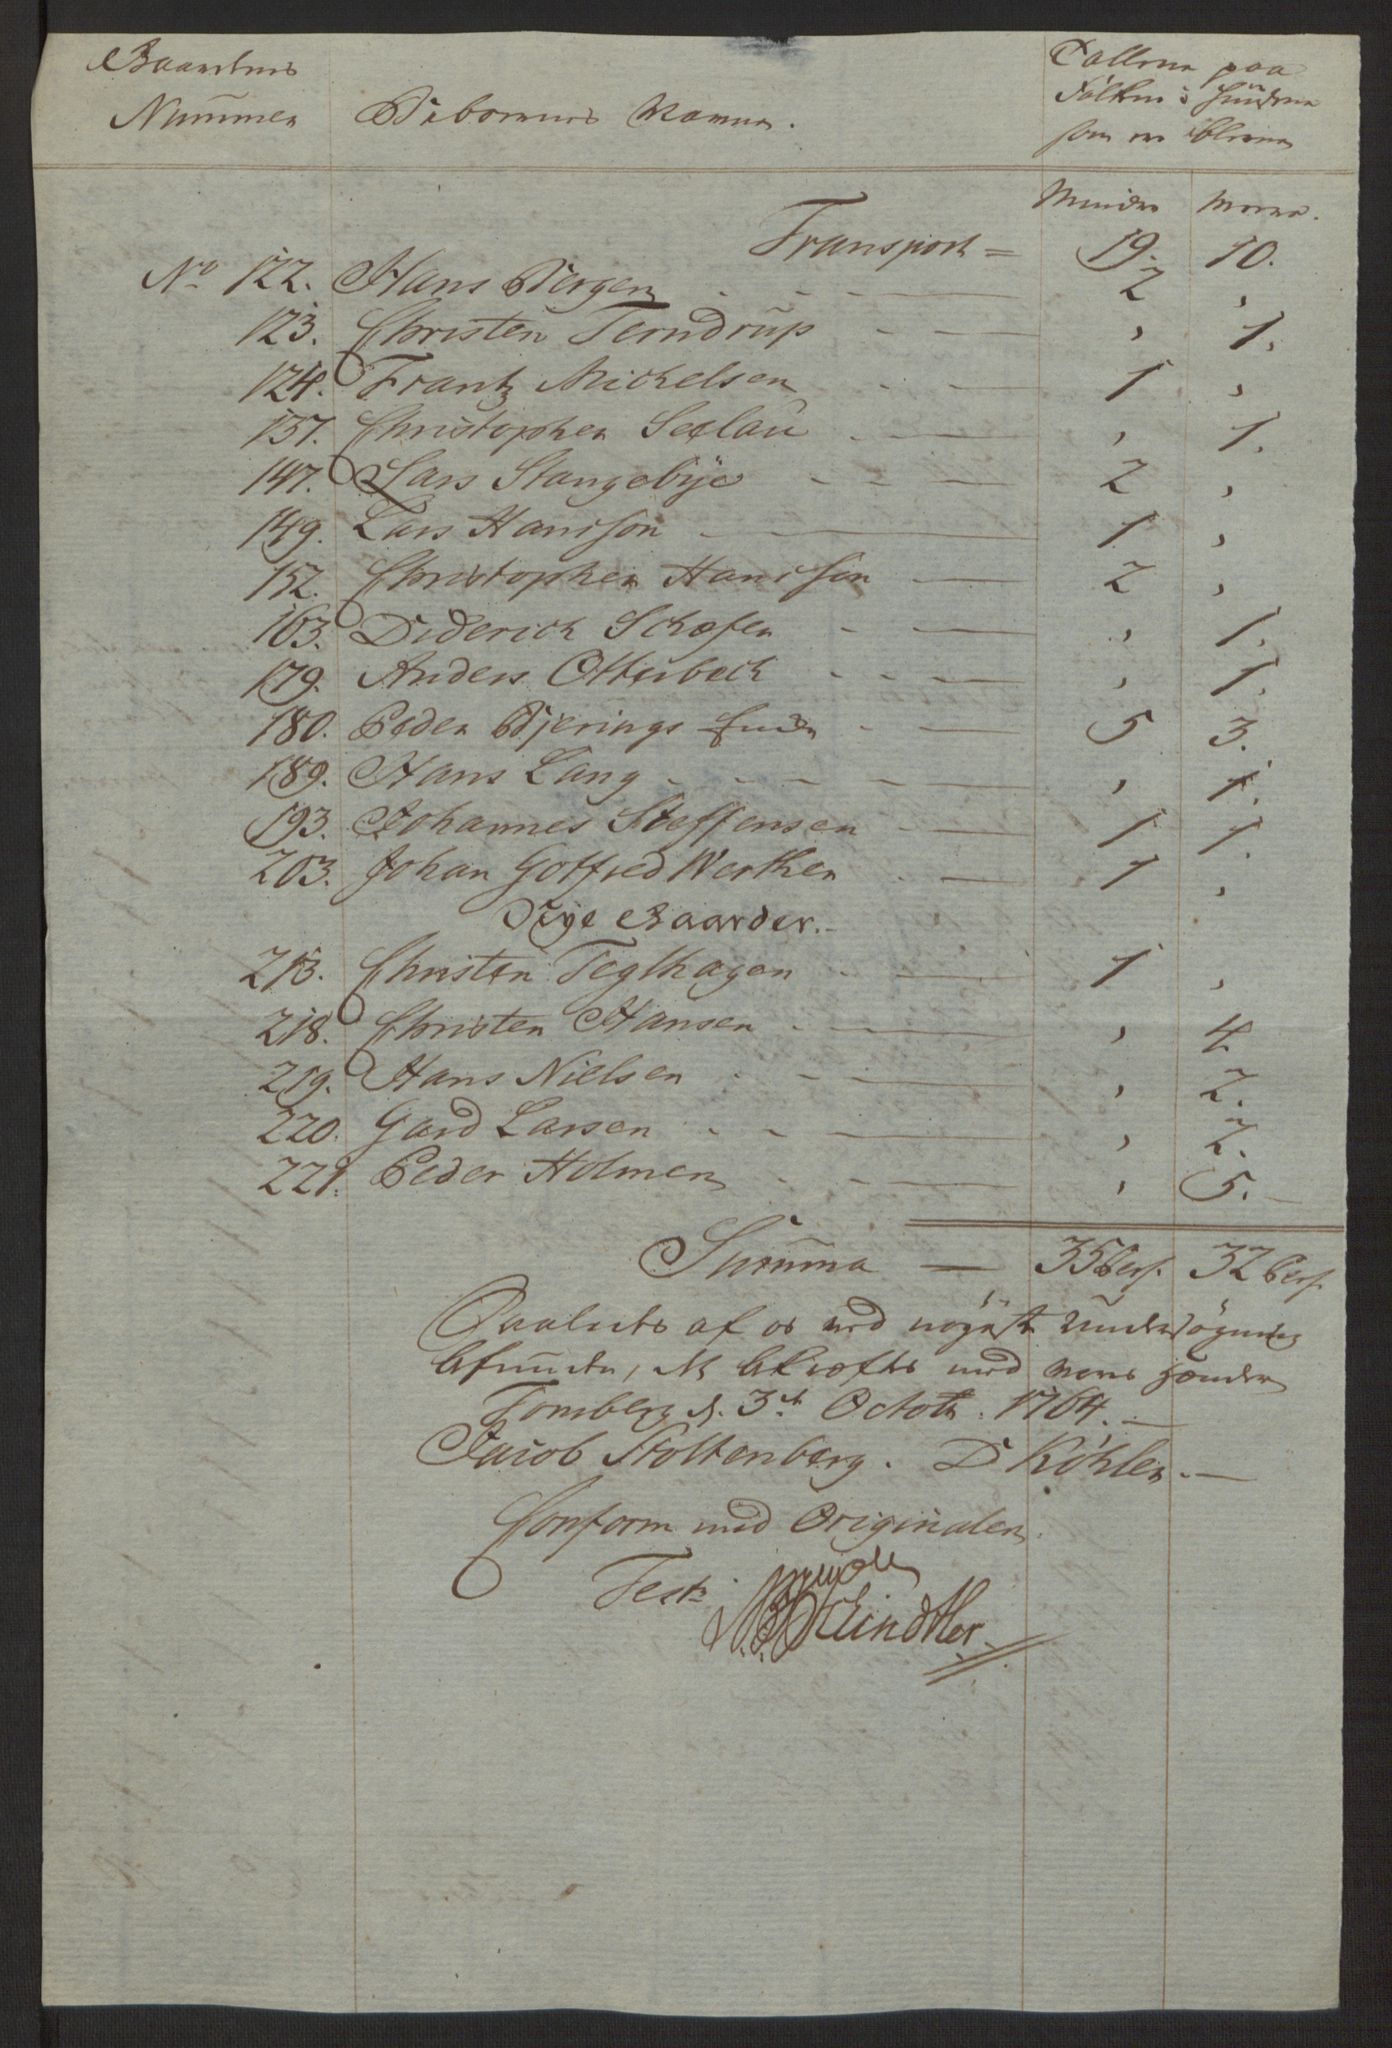 Gaardenes Nummer
Beboernes Navne.
Tallene paa
Folkene i Huusene
som ere blevne
Mindre
Meere.
Transport = 19. 10.
No 122. Hans Bergen - - - 2 ,
123. Christen Terndrup - - , 1.
124. Frantz Michelsen - - 1 ,
137. Christopher Seelau - - , 1.
147. Lars Stangebÿe - - - 2 ,
149. Lars Hansson - - 1 ,
152. Christopher Hansson - 2 ,
163. Diderich Schæfer - - , 1.
179. Anders Otterbech - - - , 1.
180. Peder Bjerings Enke - - 5 3.
189. Hans Lang - - - - , 1.
193. Johannes Steffensen - - 1 1.
203. Johan Gotfred Werther - - 1 ,
Nÿe Gaarder.
213. Christen Teglhagen - - 1 ,
218. Christen Hansen - - , 4.
219. Hans Nielsen - - - , 2.
220. Gard Larsen - - - , 2.
221. Peder Holmen - - - , 5.
Summa — 35 Pers. 32 Pers.
Saaledes af os ved nøyeste Undersøgning
befunden, det bekræftes med vores Hænder
Tonsberg d. 3de Octobr. 1764.
Jacob Stoltenberg. D Köhler.
Conform med Originalen
Test: